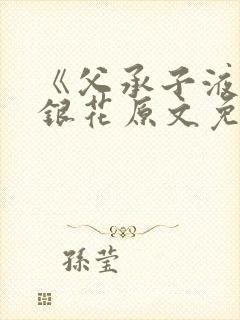 《父承子液
銀花原文免
孫莹